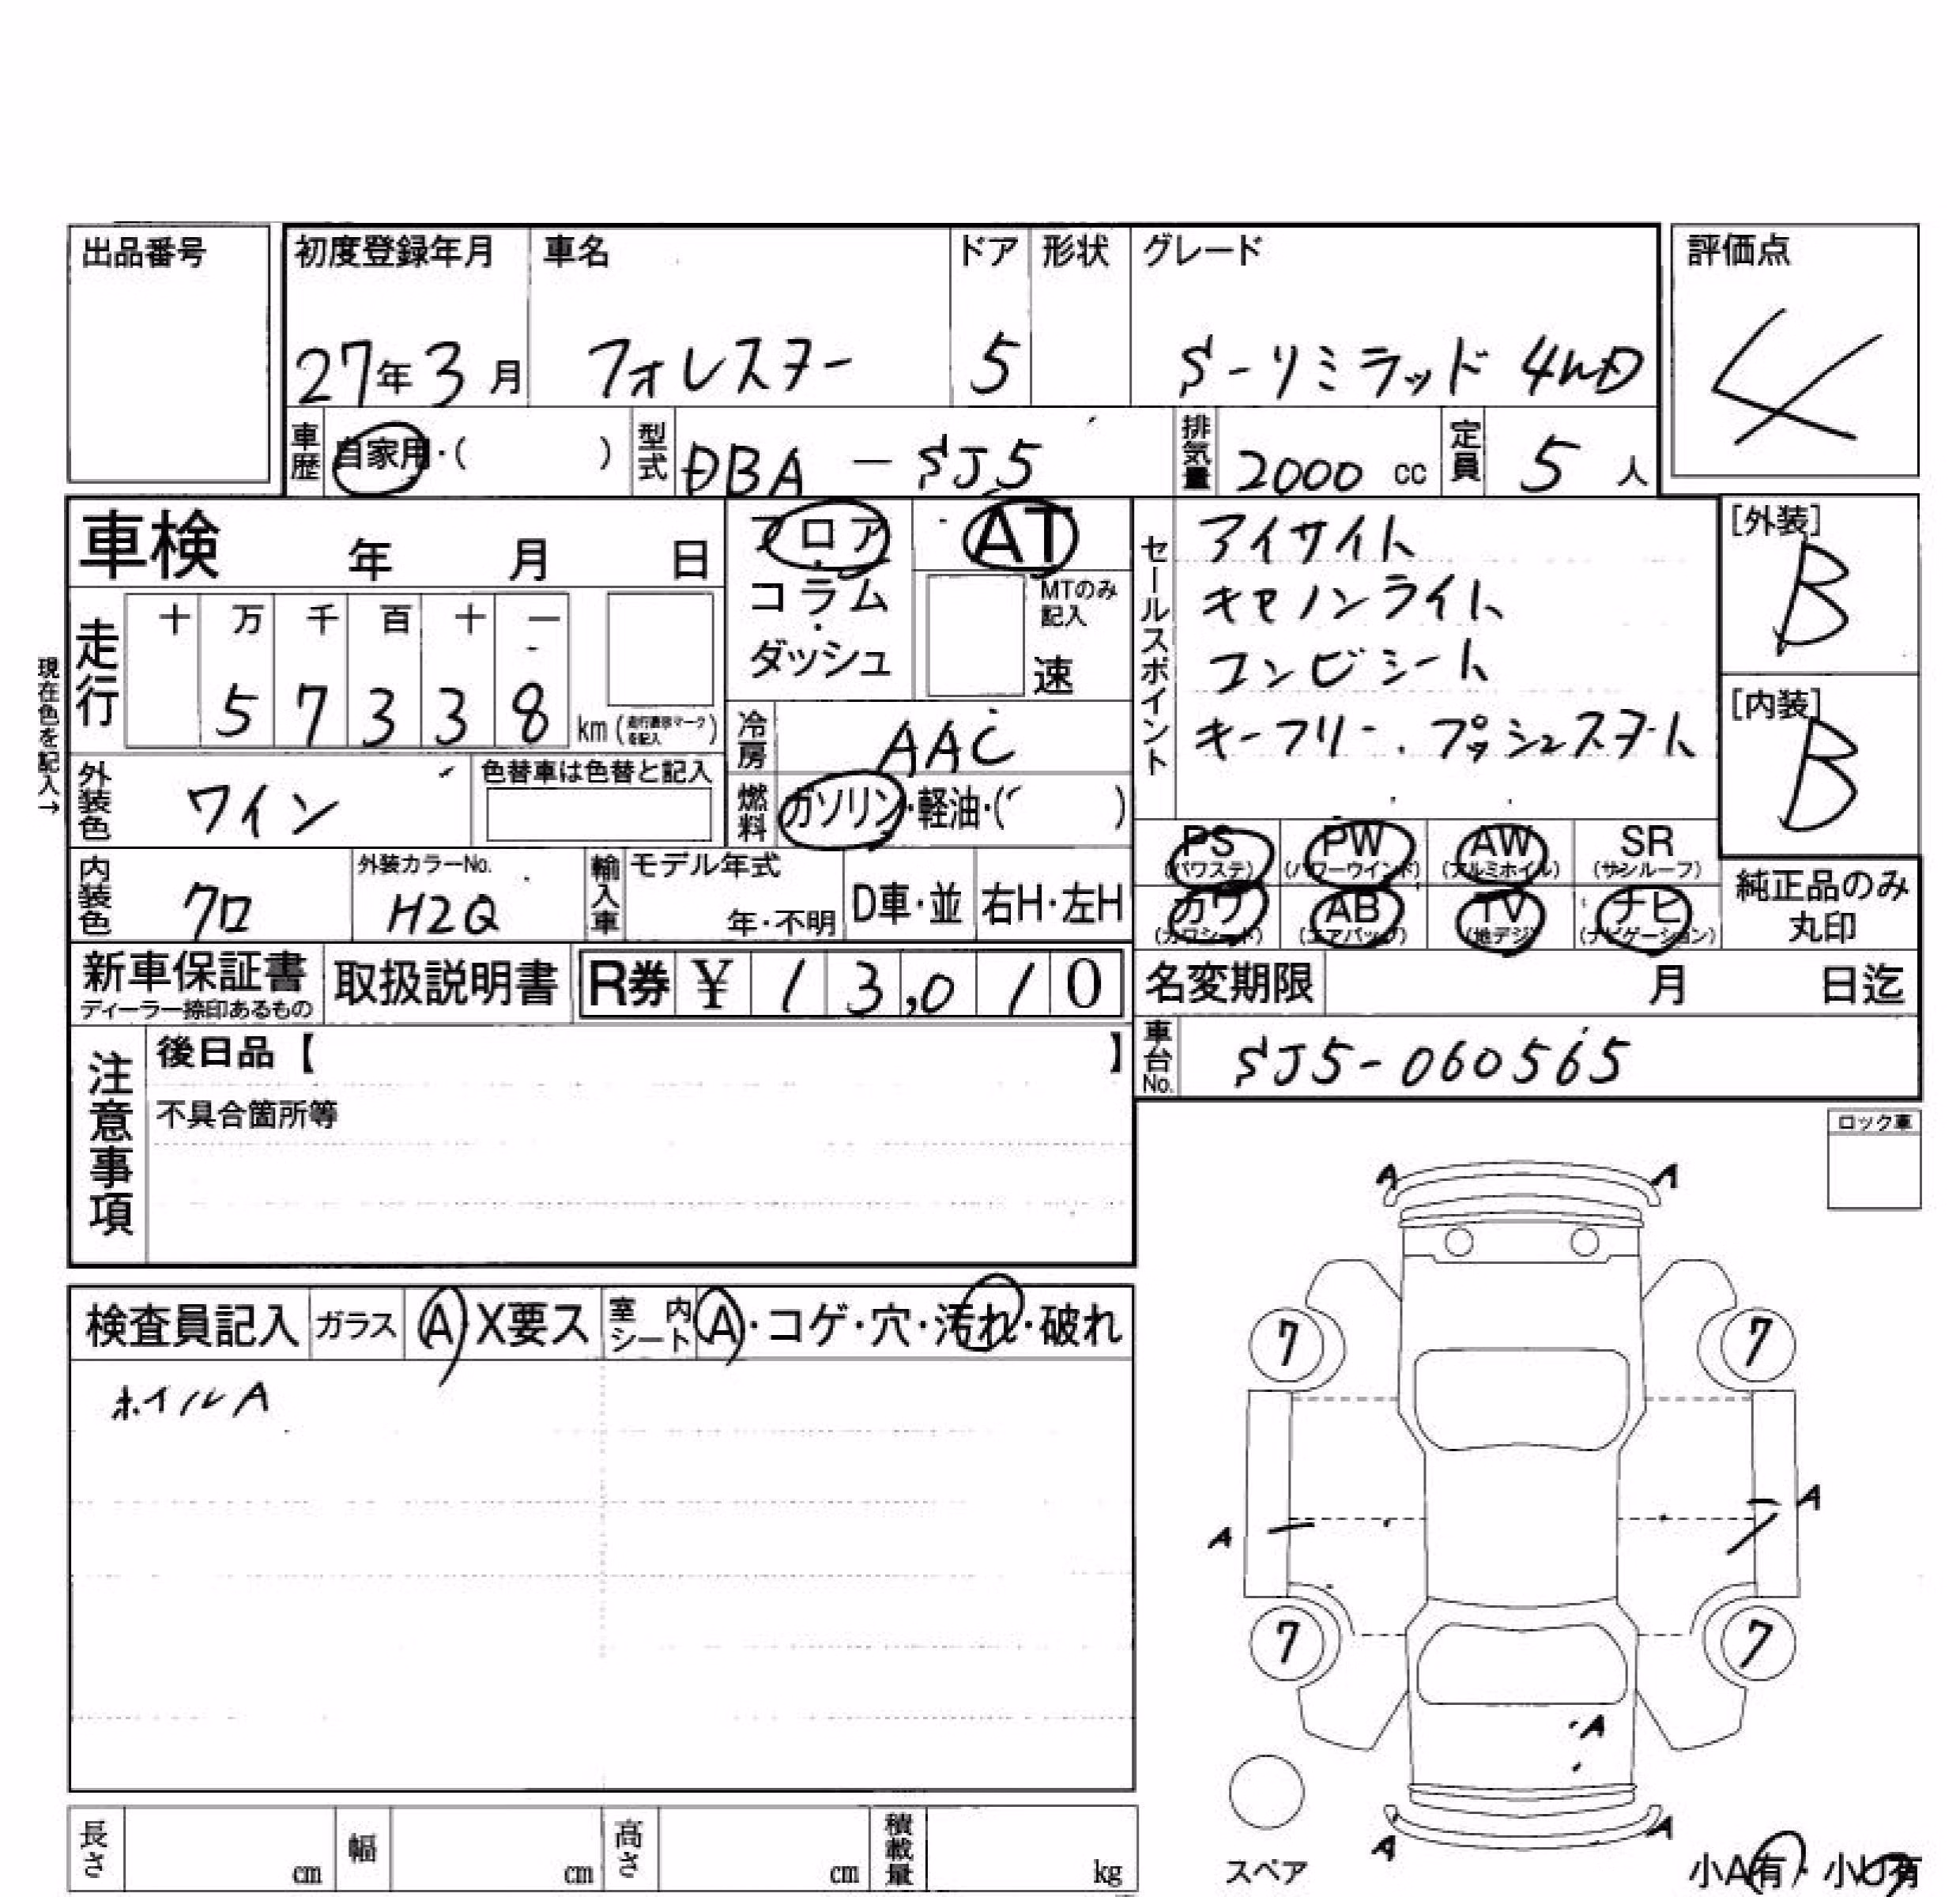 出品番号
初度登録年月 車名 ドア 形状 グレード 評価点
27年3月 フォレスター 5 S-リミテッド 4WD 4
車歴 自家用・( ) 型式 DBA-SJ5 排気量 2000 cc 定員 5 人
車検 年 月 日
フロア・コラム・ダッシュ
AT
MTのみ記入
速
セールスポイント
アイサイト
キセノンライト
コンビシート
キーフリー、プッシュスタート
[外装]
B
[内装]
B
現在色を記入→
走行 十 万 千 百 十 一
5 7 3 3 8 km(走行書換マークを記入)
冷房 AAC
外装色 ワイン 色替車は色替と記入
燃料 ガソリン・軽油・( )
PS (パワステ) PW (パワーウインド) AW (アルミホイル) SR (サンルーフ)
カワ (カワシート) AB (エアバッグ) TV (地デジ) ナビ (ナビゲーション)
純正品のみ丸印
内装色 クロ 外装カラーNo. H2Q 輸入車 モデル年式 年・不明 D車・並 右H・左H
新車保証書 ディーラー捺印あるもの 取扱説明書 R券 ¥ 13,010
名変期限 月 日迄
車台No. SJ5-060565
注意事項
後日品【 】
不具合箇所等
ロック車
検査員記入 ガラス A・X要ス 室内シート A・コゲ・穴・汚れ・破れ
ホイルA
A A
7 7
A A
7 7
A
A A
スペア
小A有・小U有
長さ cm 幅 cm 高さ cm 積載量 kg